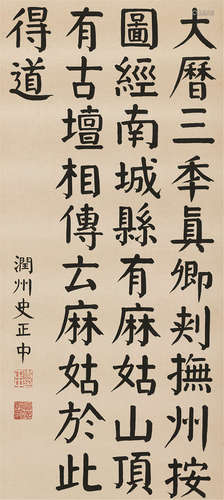 大曆三年真卿刺撫州按
圖經南城縣有麻姑山頂
有古壇相傳云麻姑於此
得道
潤州史正中